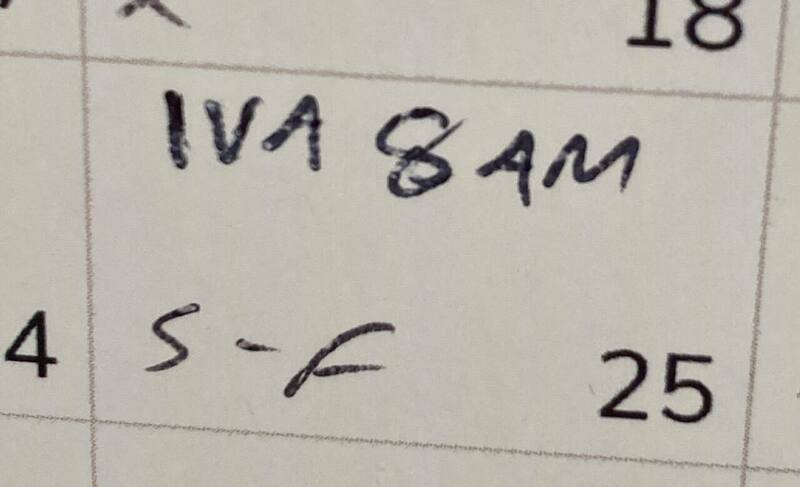 18
IVA 8 AM
4 S-F 25